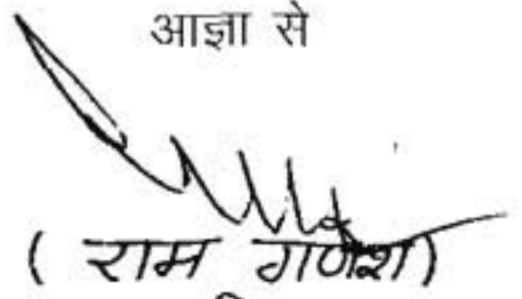 आज्ञा से
( राम गणेश)